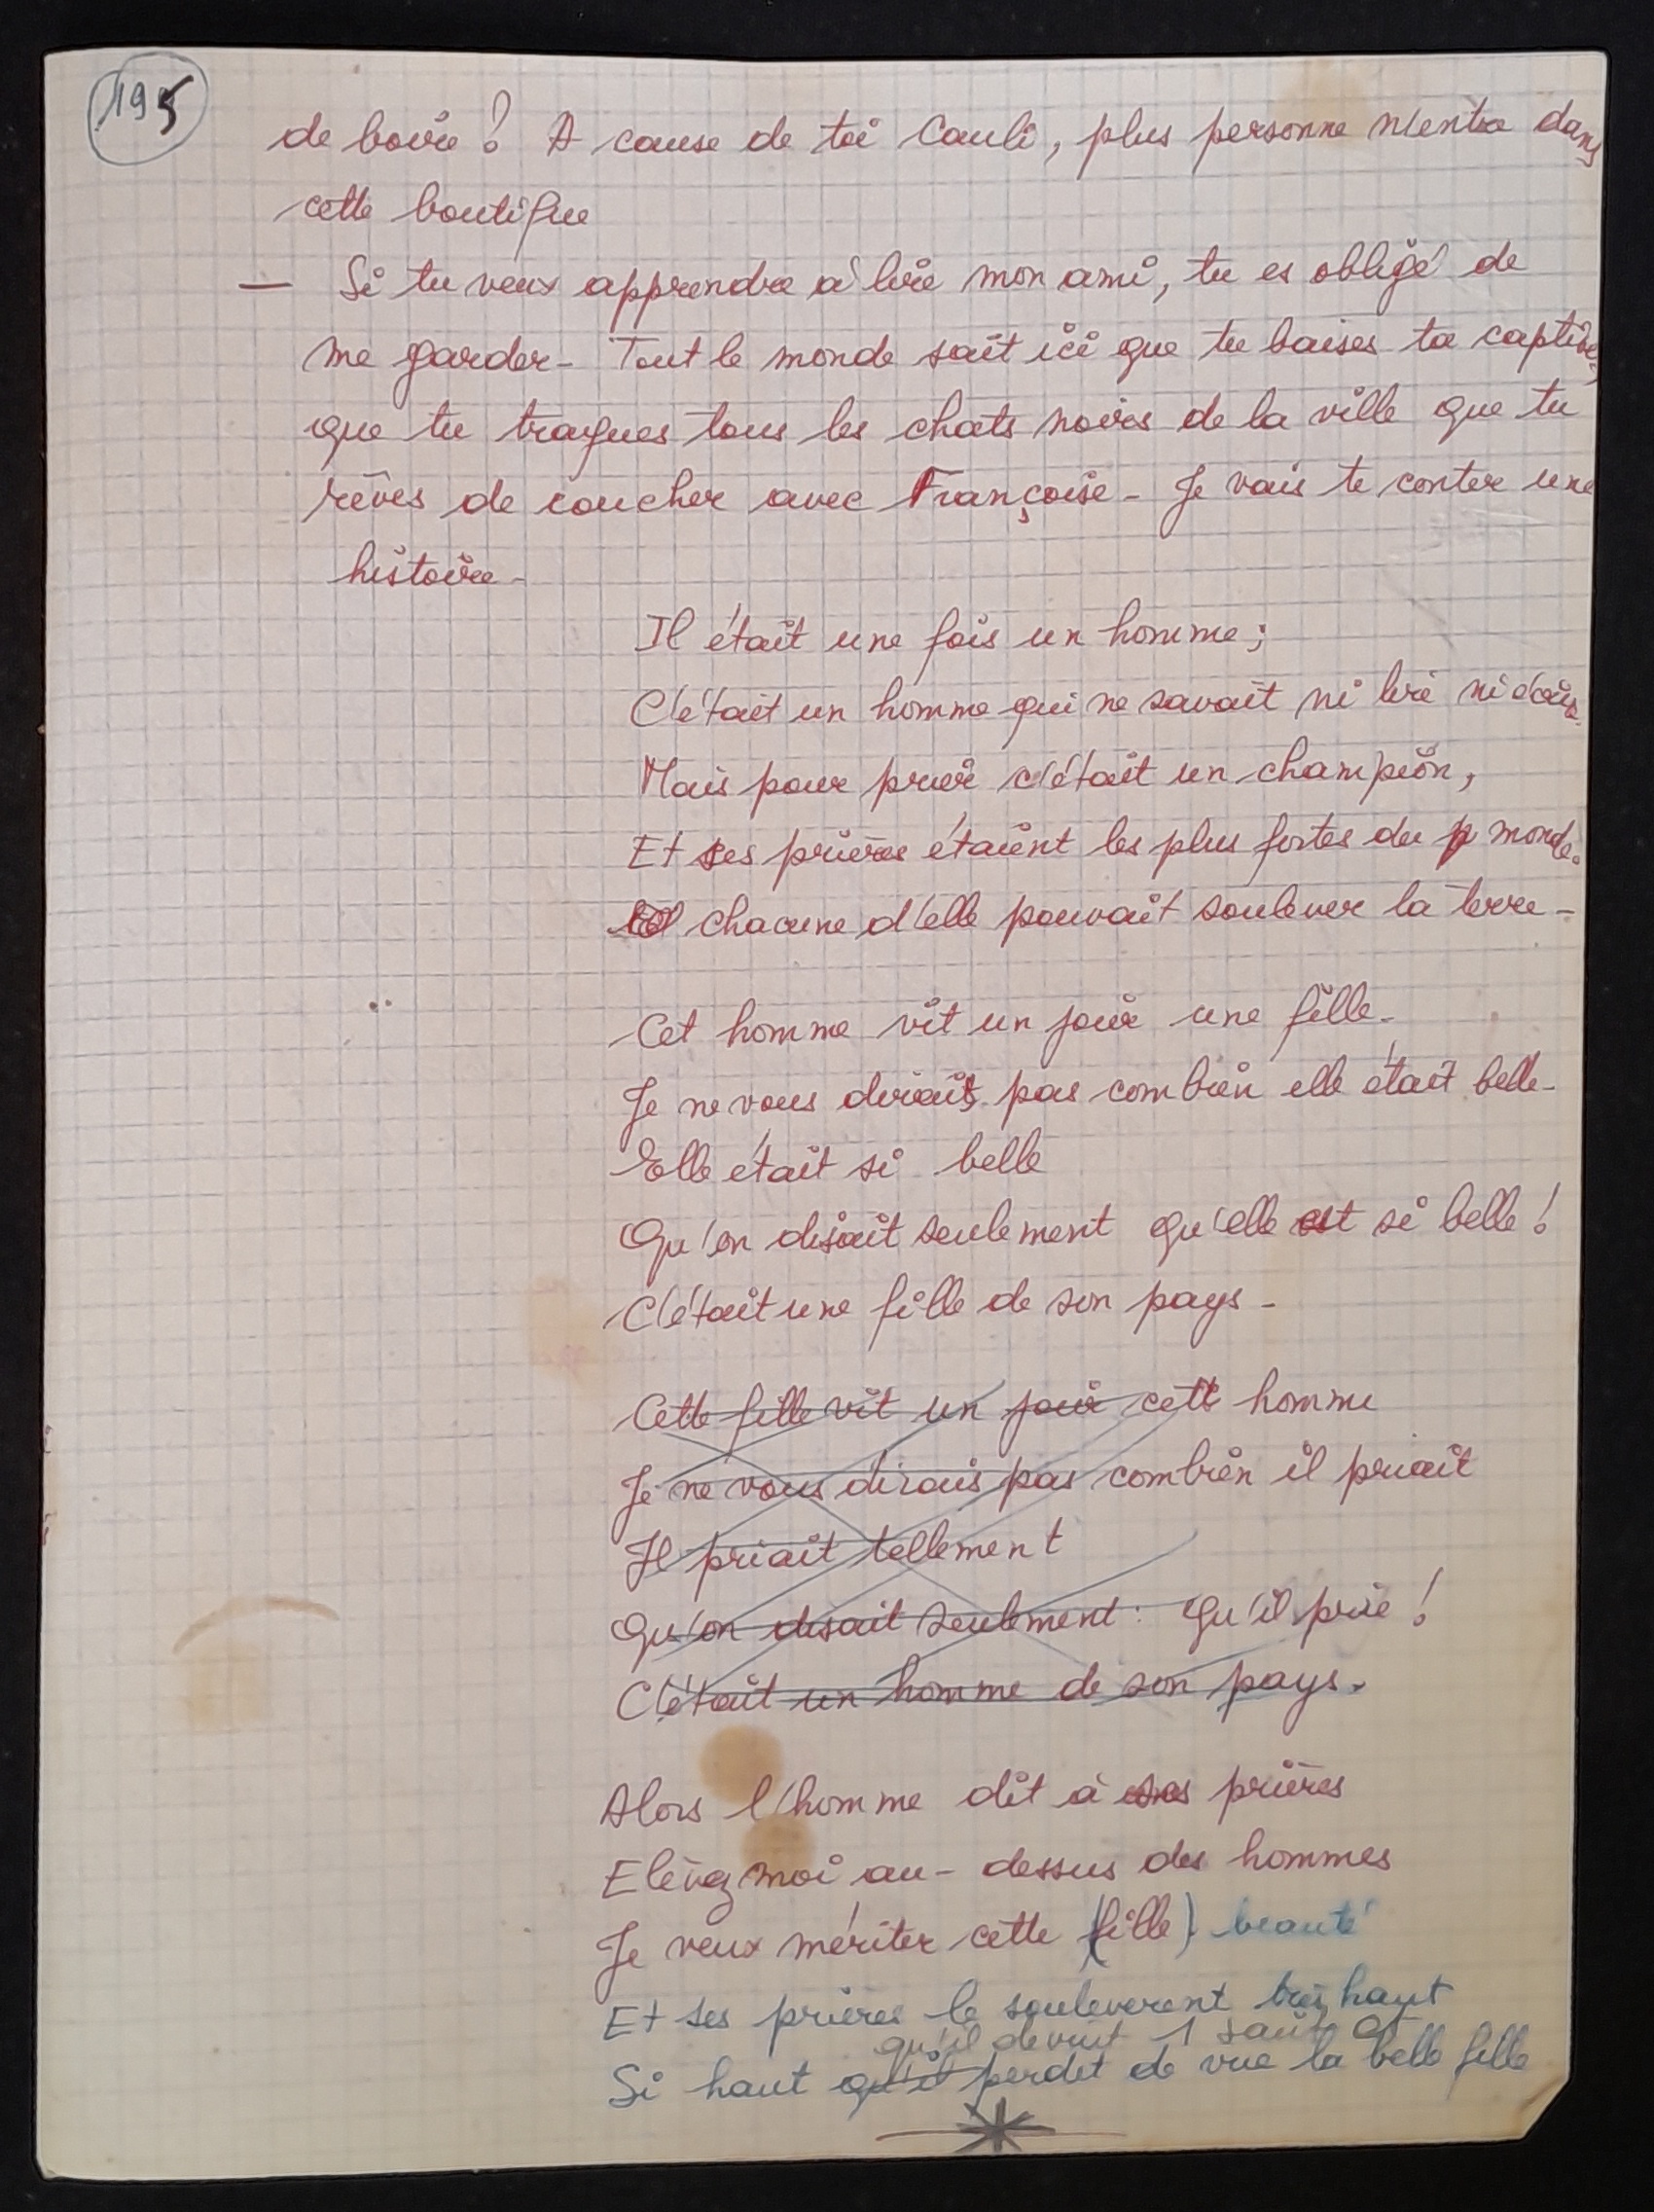 195
de boire ? A cause de toi Cauli, plus personne n'entre dans
cette boutique
— Si tu veux apprendre à lire mon ami, tu es obligé de
me garder - Tout le monde sait ici que tu baises ta captive,
que tu traques tous les chats noirs de la ville que tu
rêves de coucher avec Françoise - Je vais te conter une
histoire -
Il était une fois un homme ;
C'était un homme qui ne savait ni lire ni écrire.
Mais pour prier c'était un champion,
Et ses prières étaient les plus fortes du monde.
chacune d'elle pouvait soulever la terre -
Cet homme vit un jour une fille -
Je ne vous dirais pas combien elle était belle -
Elle était si belle
Qu'on disait seulement qu'elle est si belle !
C'était une fille de son pays -
Cette fille vit un jour cett homme
Je ne vous dirais pas combien il priait
Il priait tellement
Qu'on disait seulement : Qu'il prie !
C'était un homme de son pays.
Alors l'homme dit à ses prières
Elévez moi au-dessus des hommes
Je veux mériter cette (fille) beauté
Et ses prières le souleverent très haut
qu'il devint 1 saint et
Si haut qu'il perdit de vue la belle fille